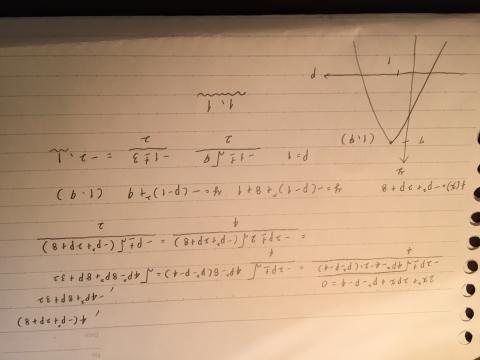 4(-p²+2p+8)
-4p²+8p+32
2x²+2px+p²-p-4=0
-2p±√4p²-4·2(p²-p-4) / 4 = -2p±√4p²-8(p²-p-4) / 4 = √4p²-8p²+8p+32
= -2p±2√(-p²+2p+8) / 4 = -p±√(-p²+2p+8) / 2
f(x)=-p²+2p+8 y=-(p-1)²+8+1 y=-(p-1)²+9 (1,9)
y
9 (1,9) p=1 -1±√9 / 2 -1±3 / 2 = -2, 1
1, 1
1 p